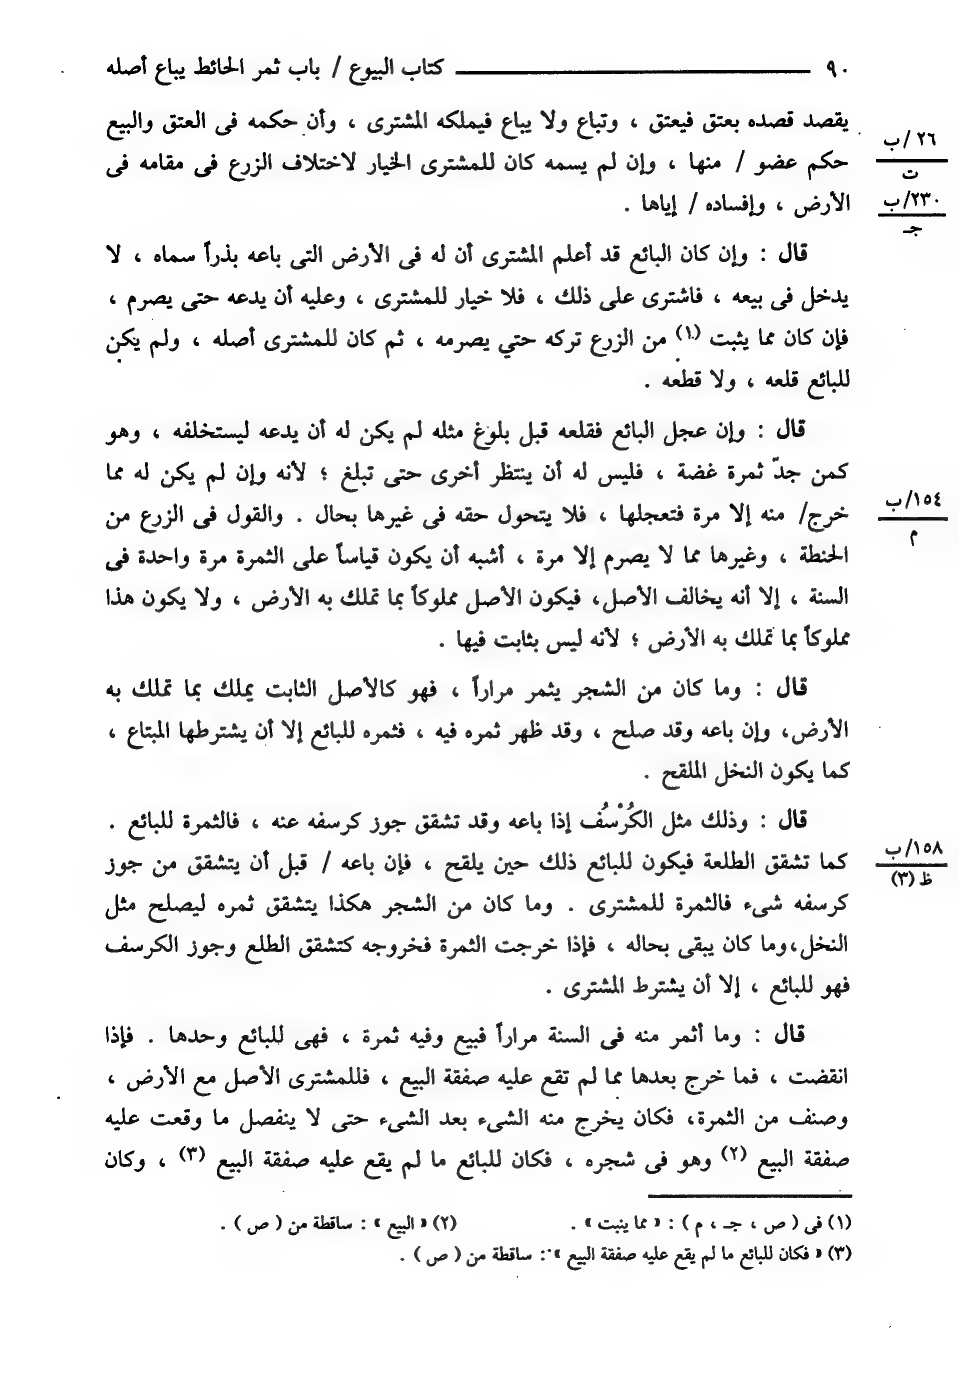 ٩٠ ـــــــ كتاب البيوع / باب ثمر الحائط يباع أصله
يقصد قصده بعتق فيعتق ، وتباع ولا يباع فيملكه المشترى ، وأن حكمه فى العتق والبيع
٢٦/ب
ت
حكم عضو / منها ، وإن لم يسمه كان للمشترى الخيار لاختلاف الزرع فى مقامه فى
٢٣٠/ب
جـ
الأرض ، وإفساده / إياها .
قال : وإن كان البائع قد أعلم المشترى أن له فى الأرض التى باعه بذراً سماه ، لا
يدخل فى بيعه ، فاشترى على ذلك ، فلا خيار للمشترى ، وعليه أن يدعه حتى يصرم ،
فإن كان مما يثبت (١) من الزرع تركه حتي يصرمه ، ثم كان للمشترى أصله ، ولم يكن
للبائع قلعه ، ولا قطعه .
قال : وإن عجل البائع فقلعه قبل بلوغ مثله لم يكن له أن يدعه ليستخلفه ، وهو
كمن جدّ ثمرة غضة ، فليس له أن ينتظر أخرى حتى تبلغ ؛ لأنه وإن لم يكن له مما
١٥٤/ب
م
خرج/ منه إلا مرة فتعجلها ، فلا يتحول حقه فى غيرها بحال . والقول فى الزرع من
الحنطة ، وغيرها مما لا يصرم إلا مرة ، أشبه أن يكون قياساً على الثمرة مرة واحدة فى
السنة ، إلا أنه يخالف الأصل، فيكون الأصل مملوكاً بما تملك به الأرض ، ولا يكون هذا
مملوكاً بما تملك به الأرض ؛ لأنه ليس بثابت فيها .
قال : وما كان من الشجر يثمر مراراً ، فهو كالأصل الثابت يملك بما تملك به
الأرض، وإن باعه وقد صلح ، وقد ظهر ثمره فيه ، فثمره للبائع إلا أن يشترطها المبتاع ،
كما يكون النخل الملقح .
قال : وذلك مثل الكُرْسُف إذا باعه وقد تشقق جوز كرسفه عنه ، فالثمرة للبائع .
كما تشقق الطلعة فيكون للبائع ذلك حين يلقح ، فإن باعه / قبل أن يتشقق من جوز
١٥٨/ب
ظ (٣)
كرسفه شىء فالثمرة للمشترى . وما كان من الشجر هكذا يتشقق ثمره ليصلح مثل
النخل،وما كان يبقى بحاله ، فإذا خرجت الثمرة فخروجه كتشقق الطلع وجوز الكرسف
فهو للبائع ، إلا أن يشترط المشترى .
قال : وما أثمر منه فى السنة مراراً فبيع وفيه ثمرة ، فهى للبائع وحدها . فإذا
انقضت ، فما خرج بعدها مما لم تقع عليه صفقة البيع ، فللمشترى الأصل مع الأرض ،
وصنف من الثمرة، فكان يخرج منه الشىء بعد الشىء حتى لا ينفصل ما وقعت عليه
صفقة البيع (٢) وهو فى شجره ، فكان للبائع ما لم يقع عليه صفقة البيع (٣) ، وكان
(١) فى ( ص ، جـ ، م ) : « مما ينبت » . (٢) « البيع » : ساقطة من ( ص ) .
(٣) « فكان للبائع ما لم يقع عليه صفقة البيع » : ساقطة من ( ص ) .